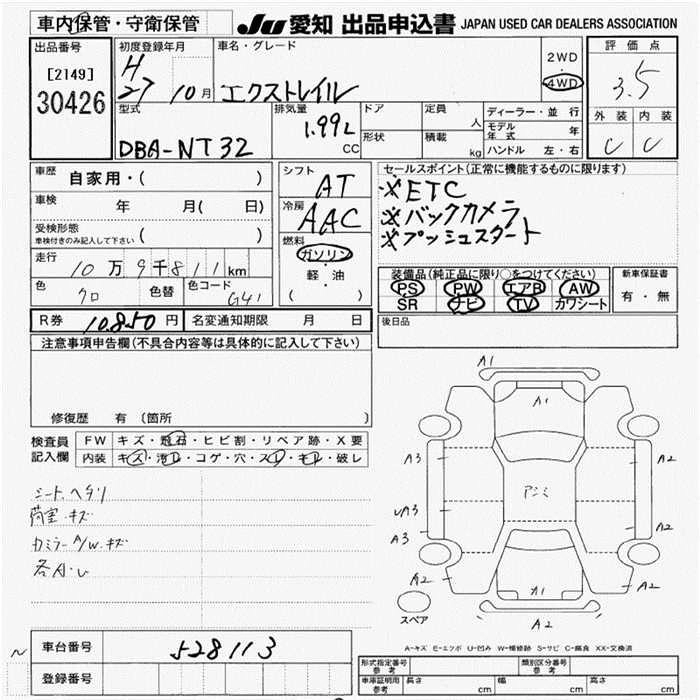 車内保管・守衛保管
JU 愛知 出品申込書 JAPAN USED CAR DEALERS ASSOCIATION
出品番号
[2149]
30426
初度登録年月
H
27 10月
車名・グレード
エクストレイル
2WD
・
4WD
評価点
3.5
外装 内装
C C
型式
DBA-NT32
排気量
1.99L
CC
ドア
形状
定員
人
積載
kg
ディーラー・並行
モデル年式 年
ハンドル 左・右
車歴
自家用・( )
車検
年 月( 日)
受検形態
車検付きのみ記入して下さい ( )
走行
10万9千811km
色
クロ
色替
色コード
G41
シフト
AT
冷房
AAC
燃料
ガソリン
・
軽・油
( )
セールスポイント(正常に機能するものに限ります)
※ETC
※バックカメラ
※プッシュスタート
装備品(純正品に限り○をつけてください)
PS PW エアB AW
SR ナビ TV カワシート
新車保証書
有・無
R券 10.850円 名変通知期限 月 日
後日品
注意事項申告欄(不具合内容等は具体的に記入して下さい)
修復歴 有(箇所 )
検査員記入欄
FW キズ・飛石・ヒビ割・リペア跡・X要
内装 キズ・汚レ・コゲ・穴・スレ・キレ・破レ
シート.ヘタリ
荷室.キズ
カミラー A/W.キズ
各A.U
A1
A1
A3
A2
アンミ
UA3
A3
A2
A2
A1
A2
A2
スペア
A-キズ E-エクボ U-凹み W-補修跡 S-サビ C-腐食 XX-交換済
車台番号
528113
登録番号
形式指定番号 参考
類別区分番号 参考
車庫証明用 参考
長さ cm 幅 cm 高さ cm